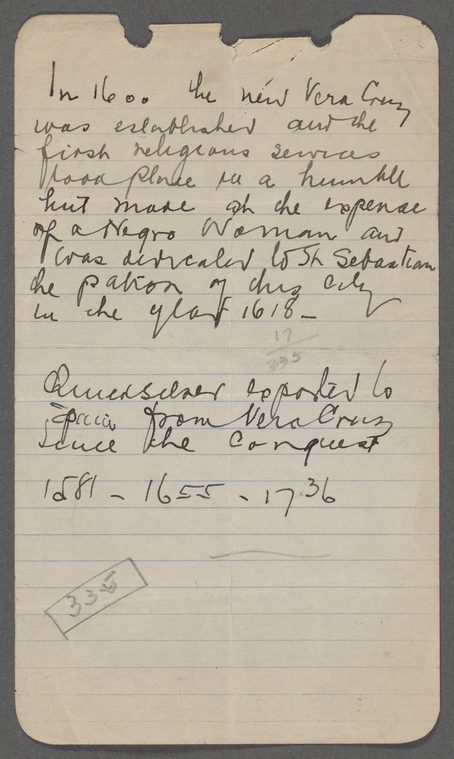 In 1600 the new Vera Cruz
was established and the
first religious services
took place in a humble
hut made at the expense
of a Negro Woman and
was dedicated to St Sebastian
the patron of this city
in the year 1618 -
17
335
Quicksilver exported to
Spain from Vera Cruz
since the Conquest
1581 - 1655 - 1736
335